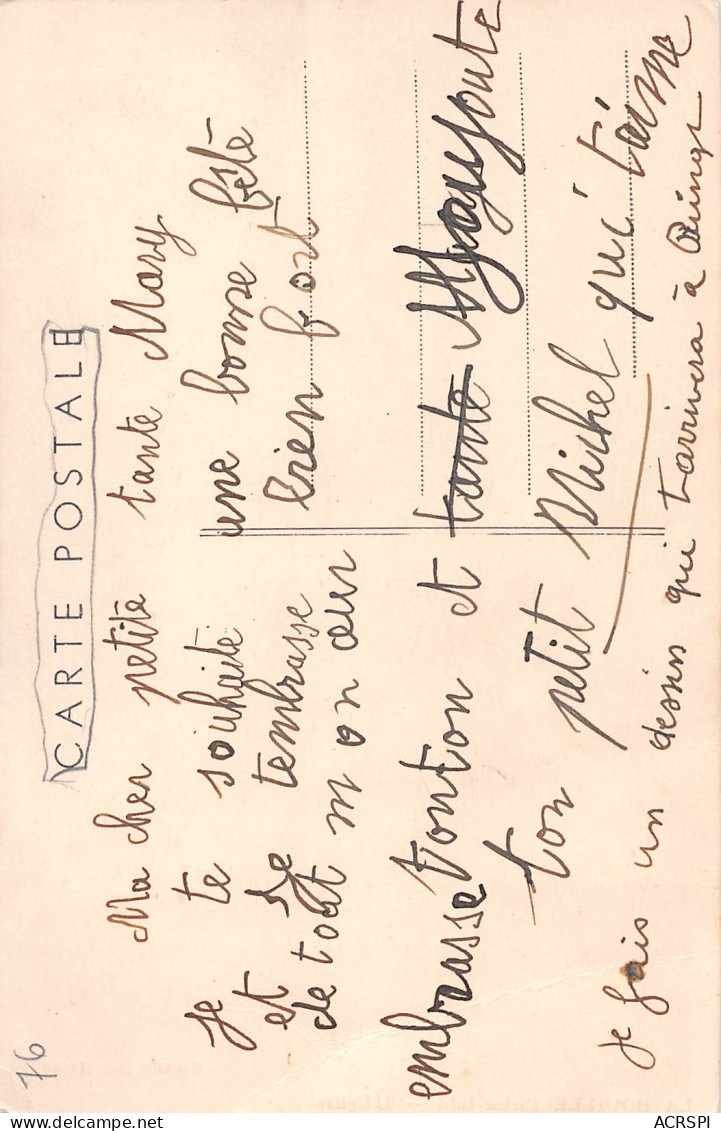 CARTE POSTALE
Ma cher petite tante Mary
Je te souhaite une bonne fête
et je t'embrasse bien fort
de tout mon cœur
embrasse tonton et tante
ton petit Michel qui t'aime
je fais un dessin qui t'arrivera à
76
ACRSPI